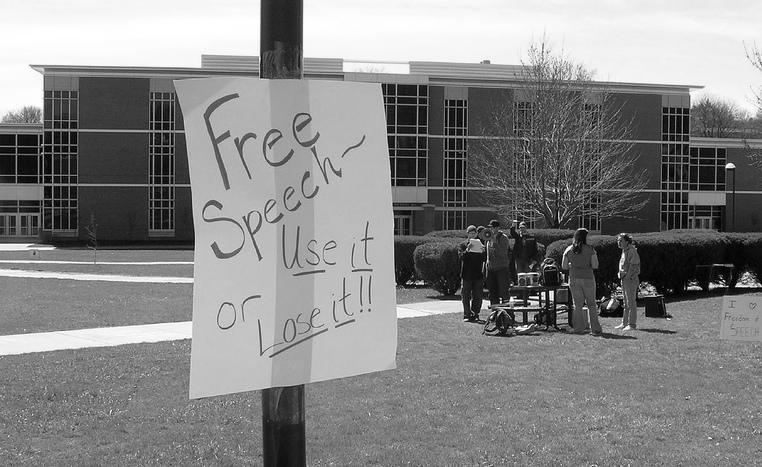 Free
Speech~
Use it
or
Lose it!!
I ♡
Freedom of